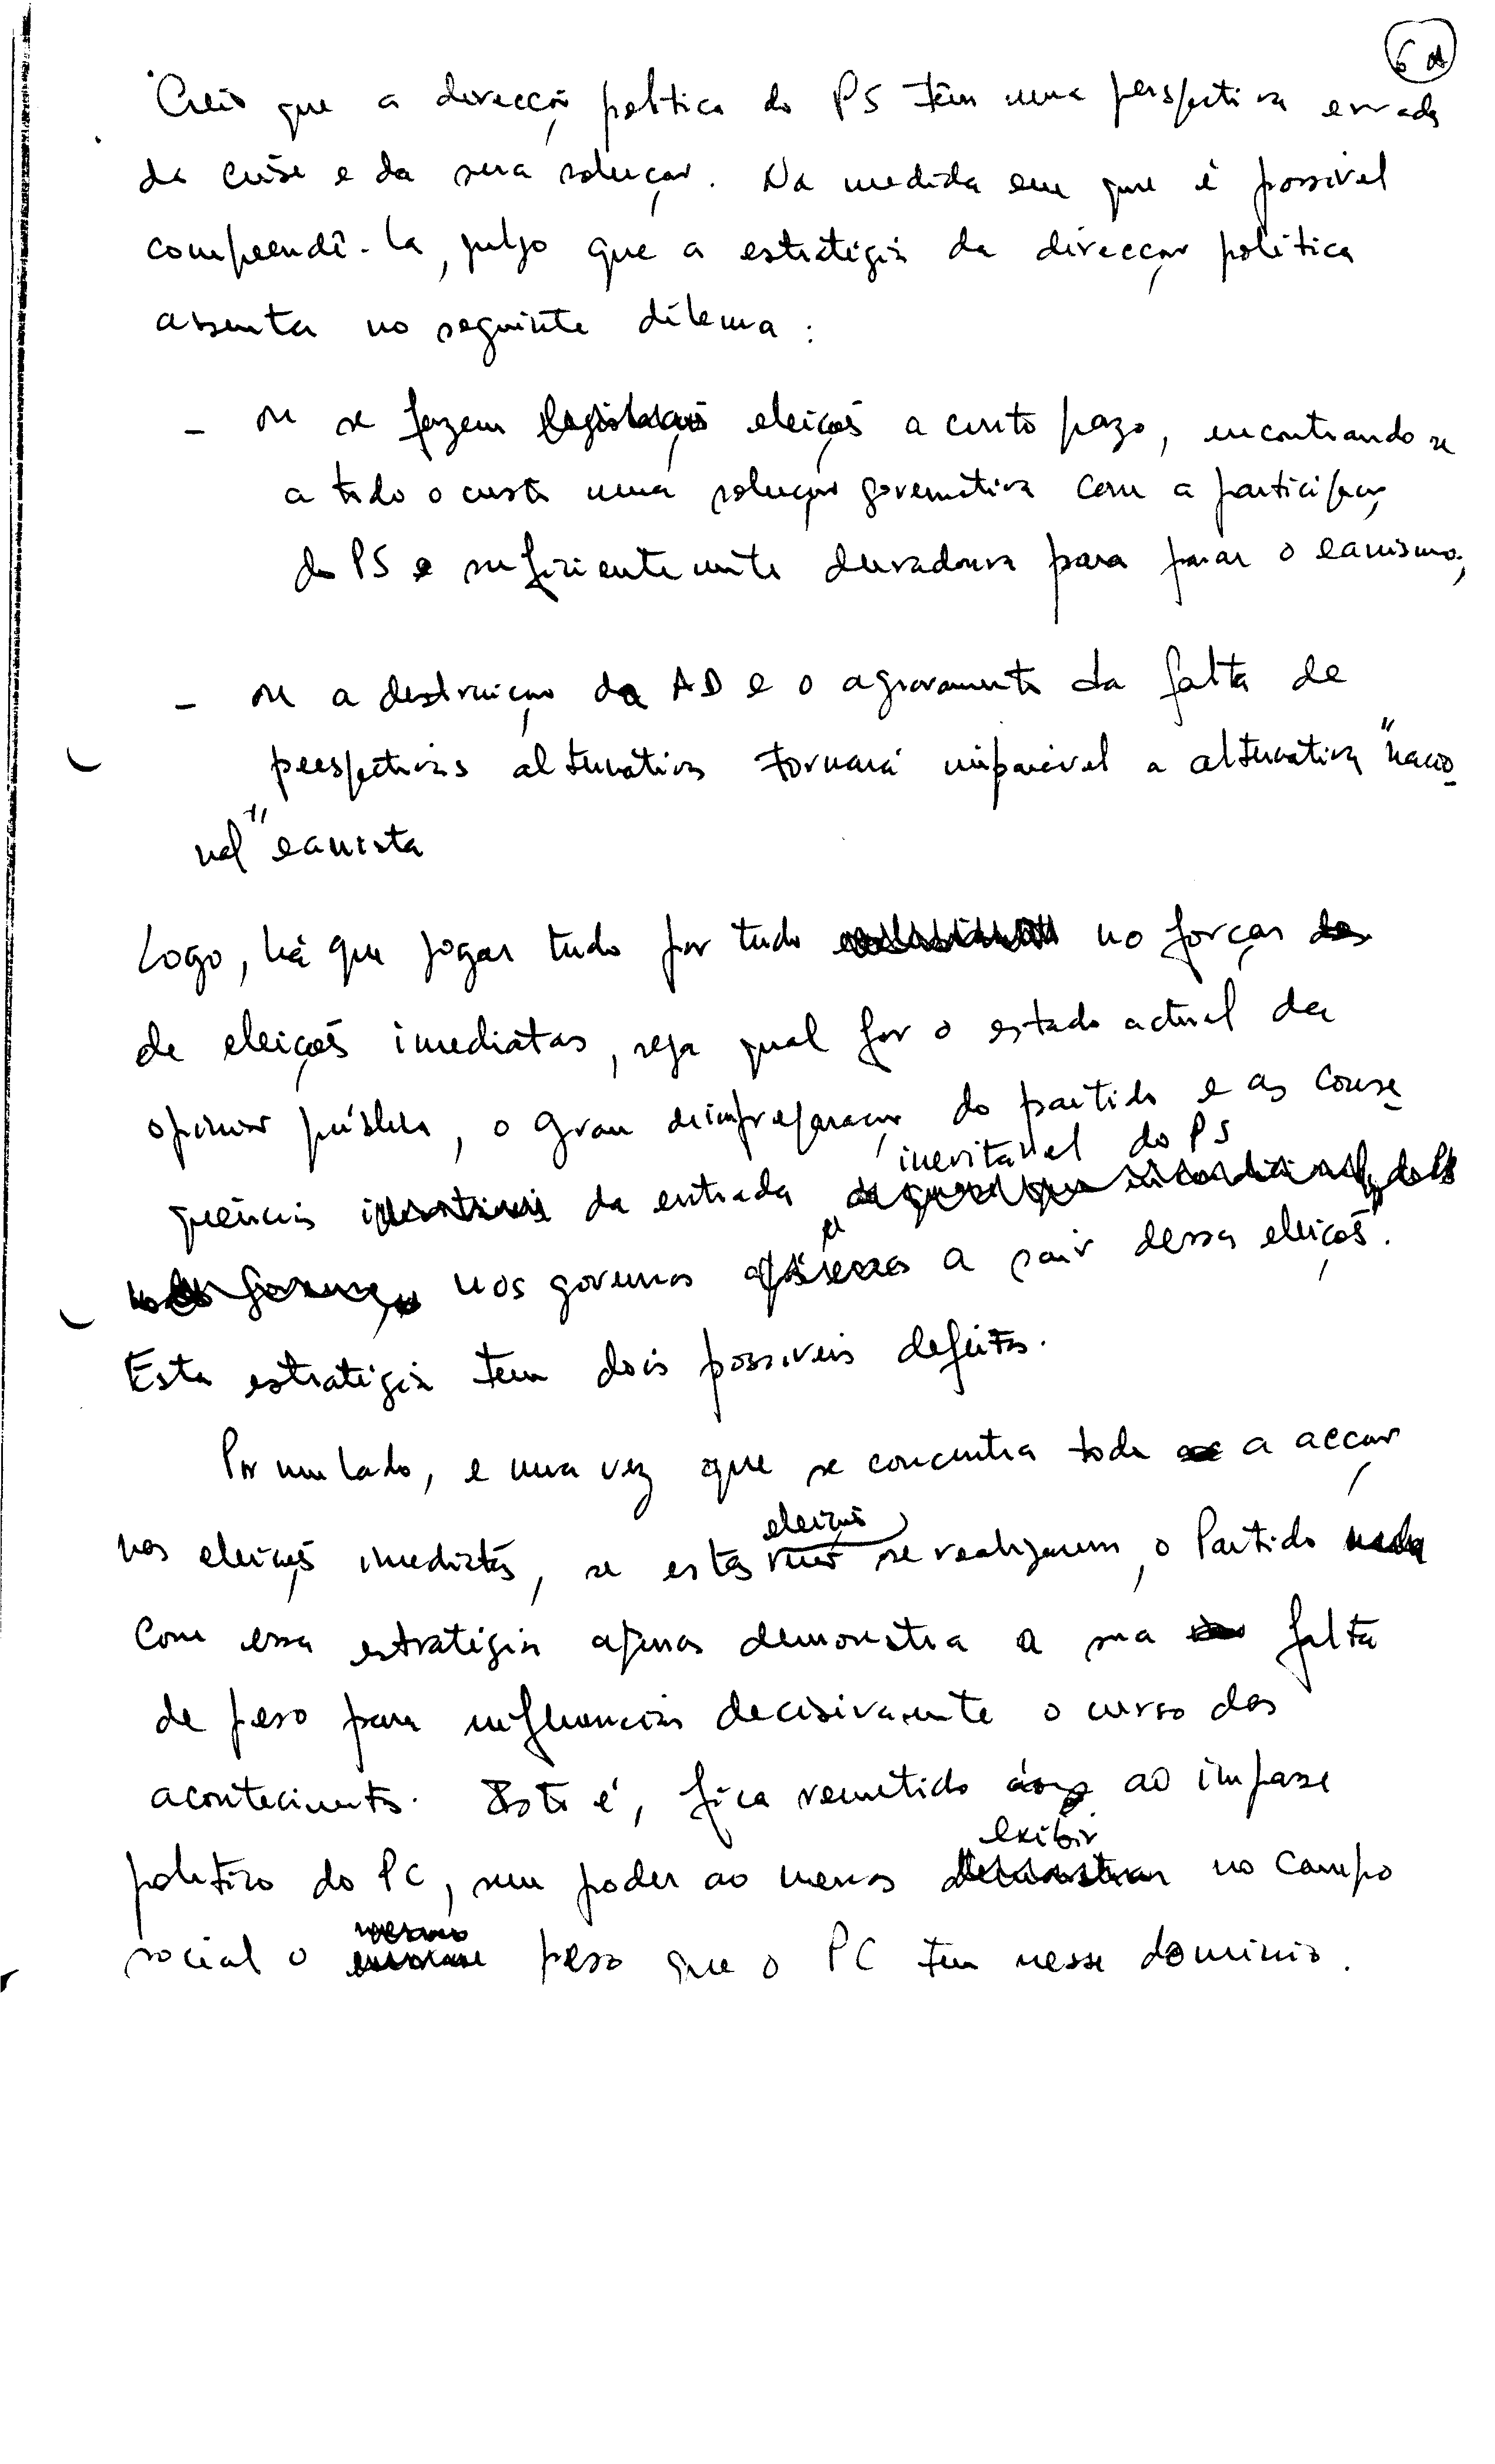 6A
Creio que a direcção política do PS tem uma perspectiva errada
da crise e da sua solução. Na medida em que é possível
compreendê-la, julgo que a estratégia da direcção política
assenta no seguinte dilema:
- ou se fazem eleições a curto prazo, encontrando-se
a todo o custo uma solução governativa com a participação
do PS e suficientemente duradoura para parar o eanismo;
- ou a destruição da AD e o agravamento da falta de
perspectivas alternativas tornará imparável a alternativa "nacio-
nal" eanista
Logo, há que jogar tudo por tudo no forçar
de eleições imediatas, seja qual for o estado actual da
opinião pública, o grau de impreparação do partido e as conse-
inevitável do PS
quências da entrada
nos governos a sair dessas eleições.
Esta estratégia tem dois possíveis defeitos.
Por um lado, e uma vez que se concentra toda a acção
eleições
nas eleições imediatas, se estas não se realizarem, o Partido
com essa estratégia apenas demonstra a sua falta
de peso para influenciar decisivamente o curso dos
acontecimentos. Isto é, fica remetido ao impasse
exibir
político do PC, sem poder ao menos no campo
mesmo
social o peso que o PC tem nesse domínio.